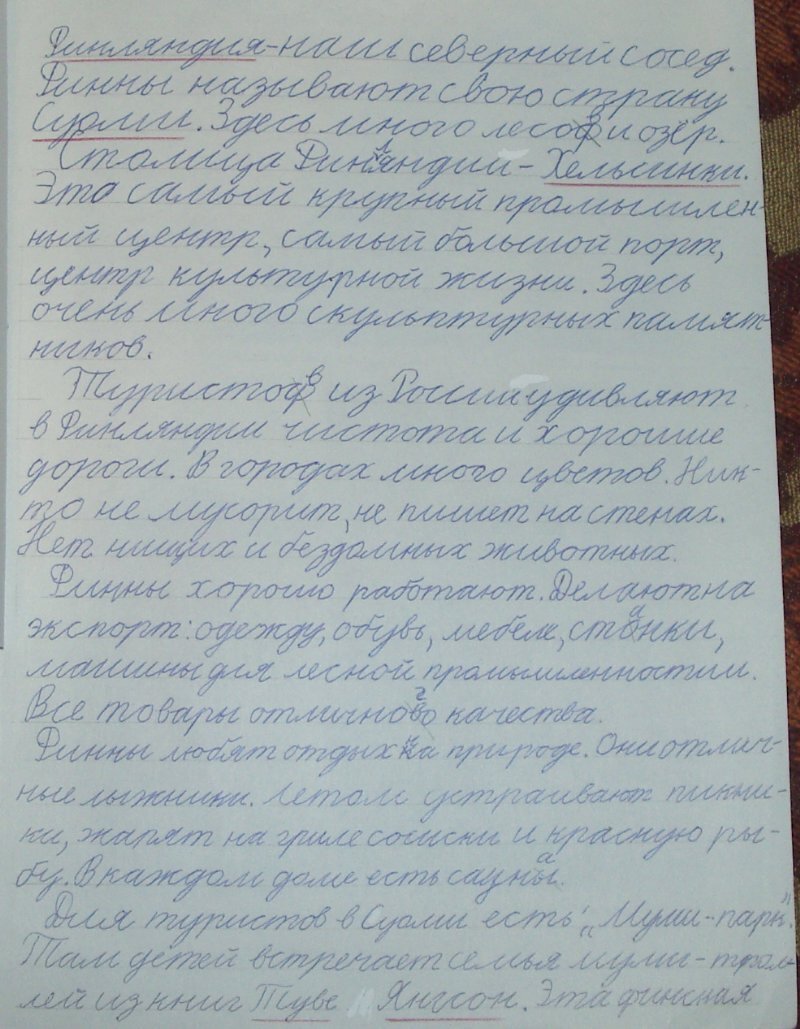 Финляндия-наш северный сосед.
Финны называют свою страну
Суоми. Здесь много лесов и озёр.
Столица Финляндии - Хельсинки.
Это самый крупный промышлен-
ный центр, самый большой порт,
центр культурной жизни. Здесь
очень много скульптурных памят-
ников.
Туристов из России удивляют
в Финляндии чистота и хорошие
дороги. В городах много цветов. Ник-
то не мусорит, не пишет на стенах.
Нет нищих и бездомных животных.
Финны хорошо работают. Делают на
экспорт: одежду, обувь, мебель, станки,
машины для лесной промышленности.
Все товары отличного качества.
Финны любят отдых на природе. Они отлич-
ные лыжники. Летом устраивают пикни-
ки, жарят на гриле сосиски и красную ры-
бу. В каждом доме есть сауна.
Для туристов в Суоми есть „Муми-парк".
Там детей встречает семья муми-трол-
лей из книг Туве Янссон. Эта финская